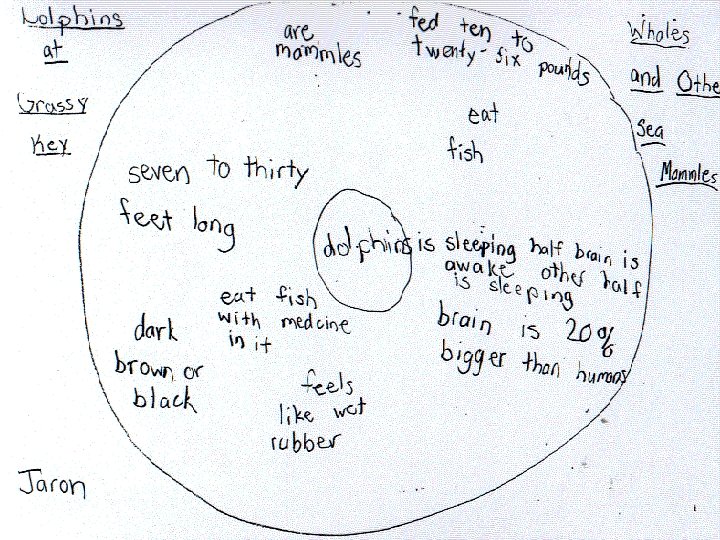 Dolphins
at
Grassy
Key
are
mammles
fed ten to
twenty-six pounds
Wholes
and Othe
Sea
Mammles
eat
fish
seven to thirty
feet long
dolphins is sleeping half brain is
awake other half
is sleeping
eat fish
with medcine
in it
brain is 20%
bigger than humans
dark
brown or
black
feels
like wet
rubber
Jaron